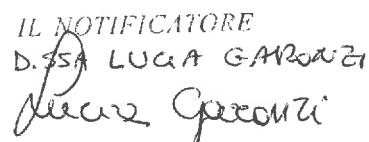 IL NOTIFICATORE
D.SSA LUCIA GARONZI
Lucia Garonzi